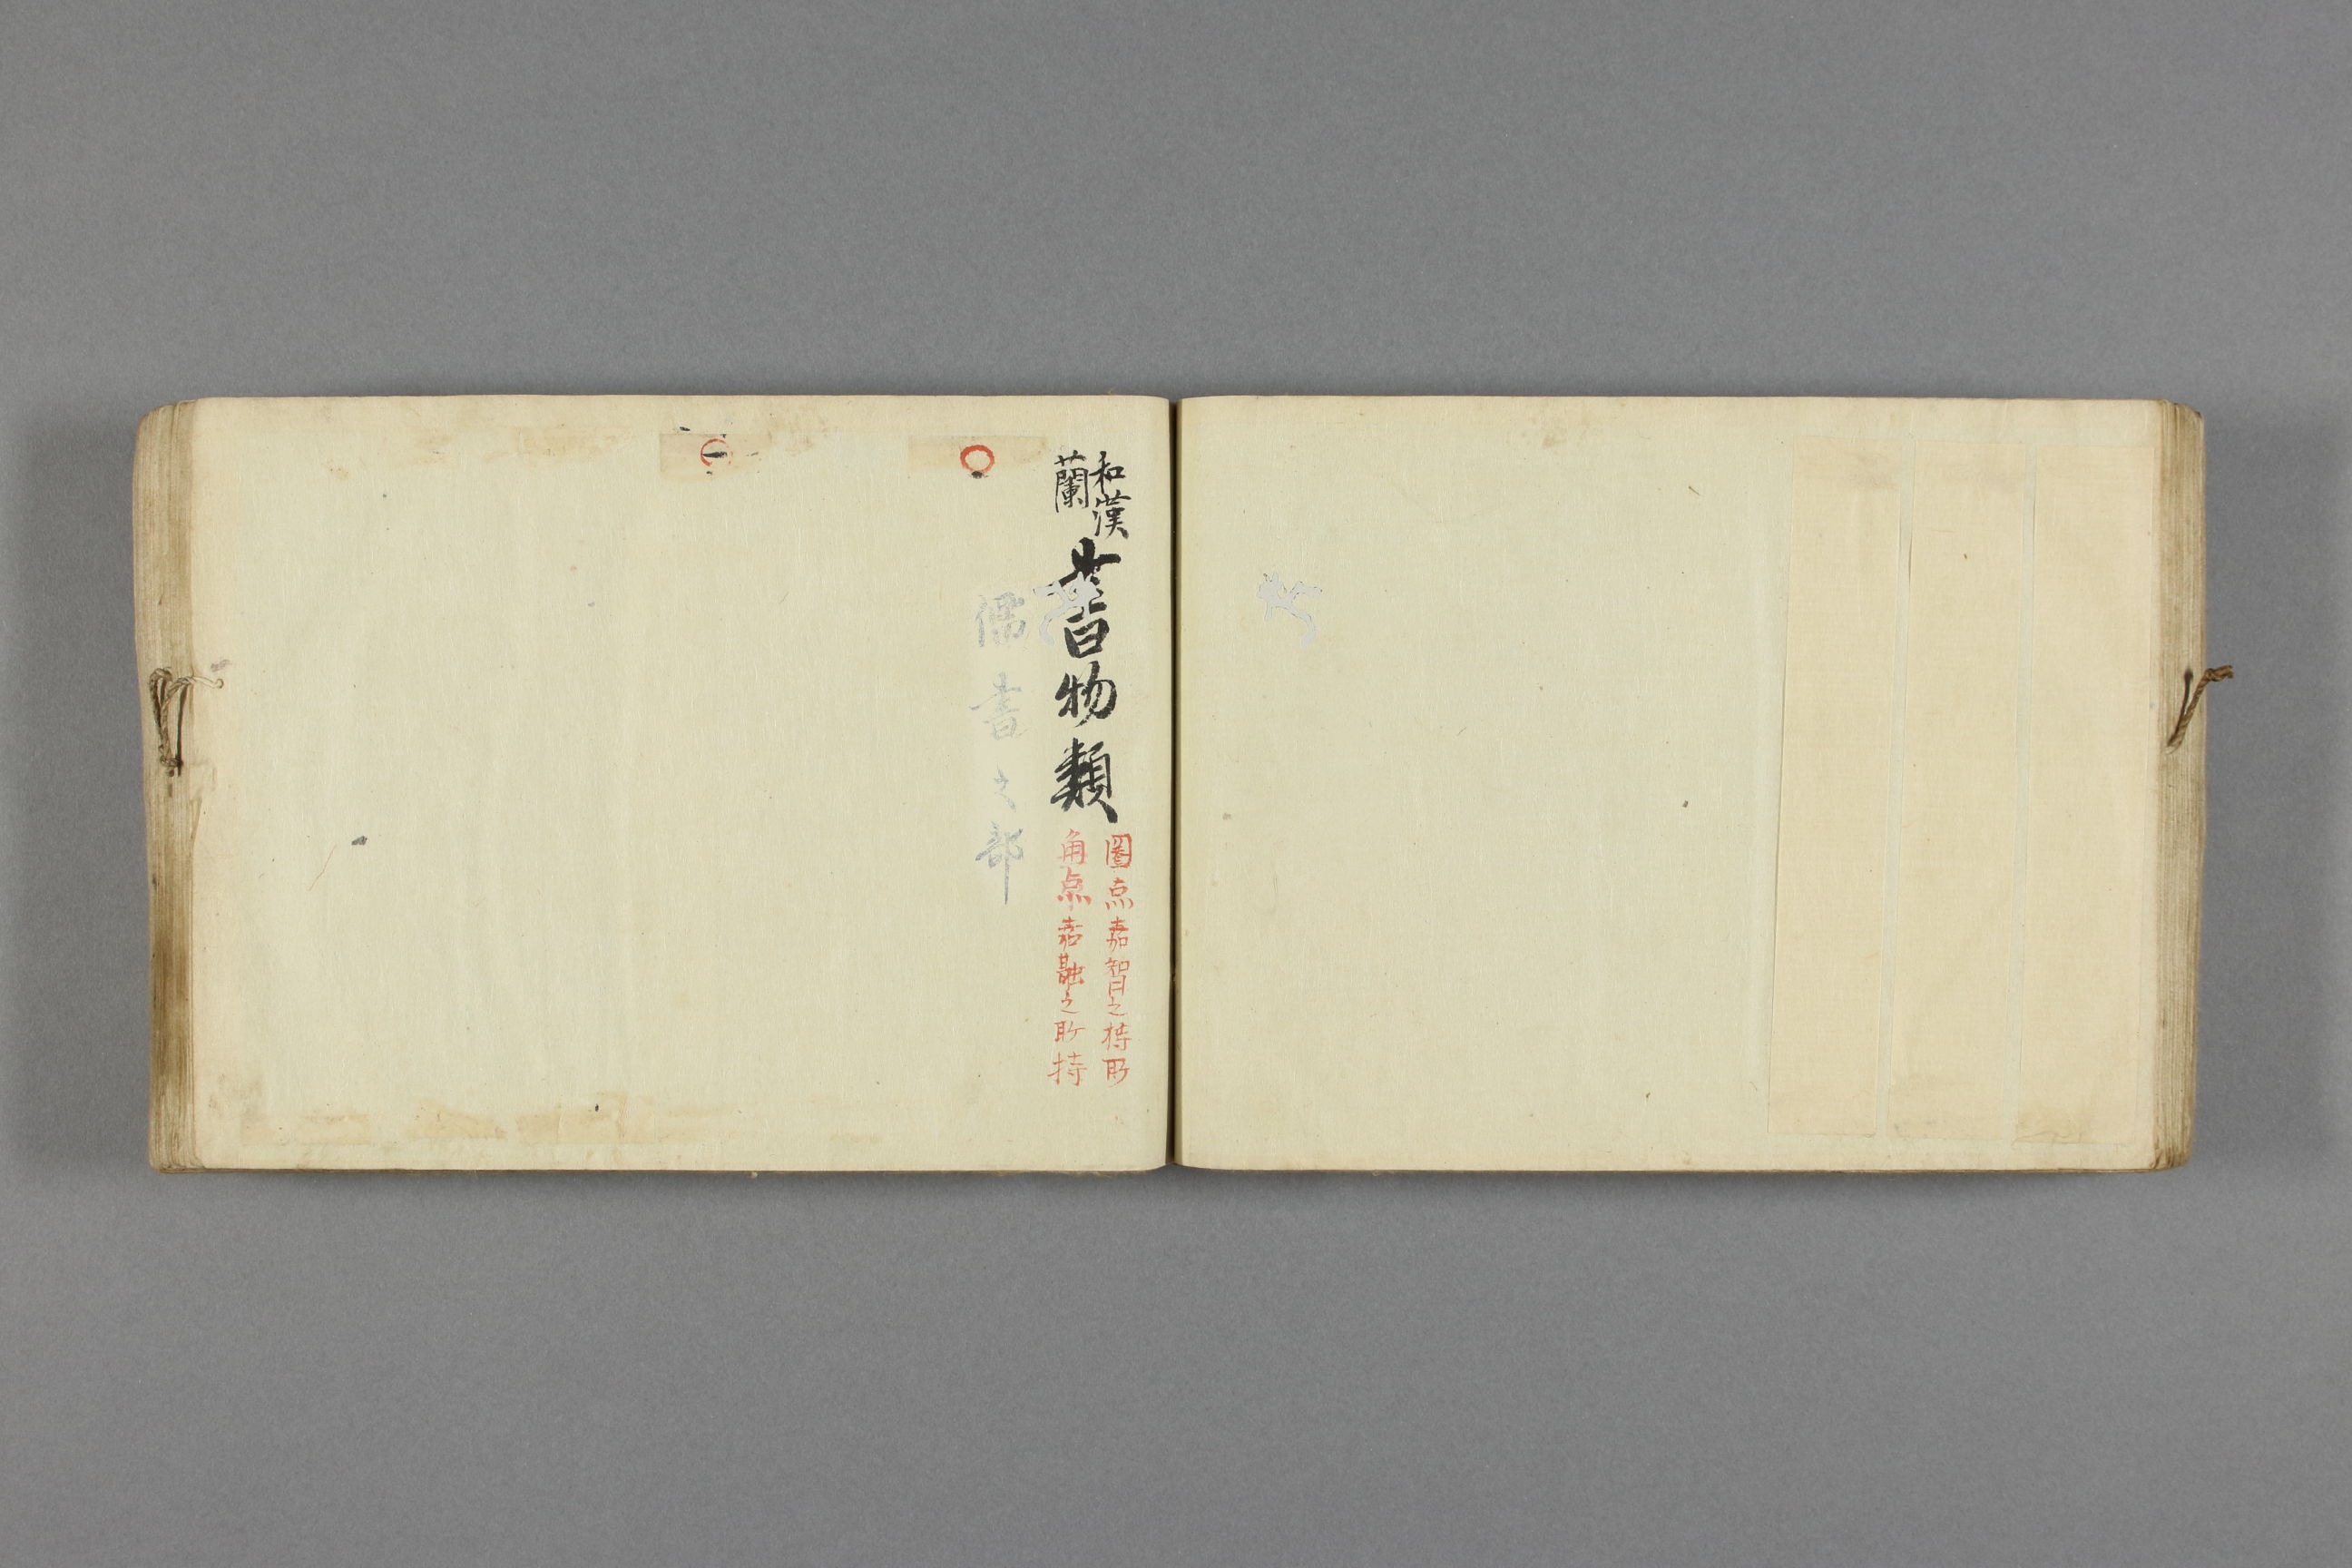 和漢
蘭
書物類
圏点嘉智之持所
角点嘉融之所持
儒書之部